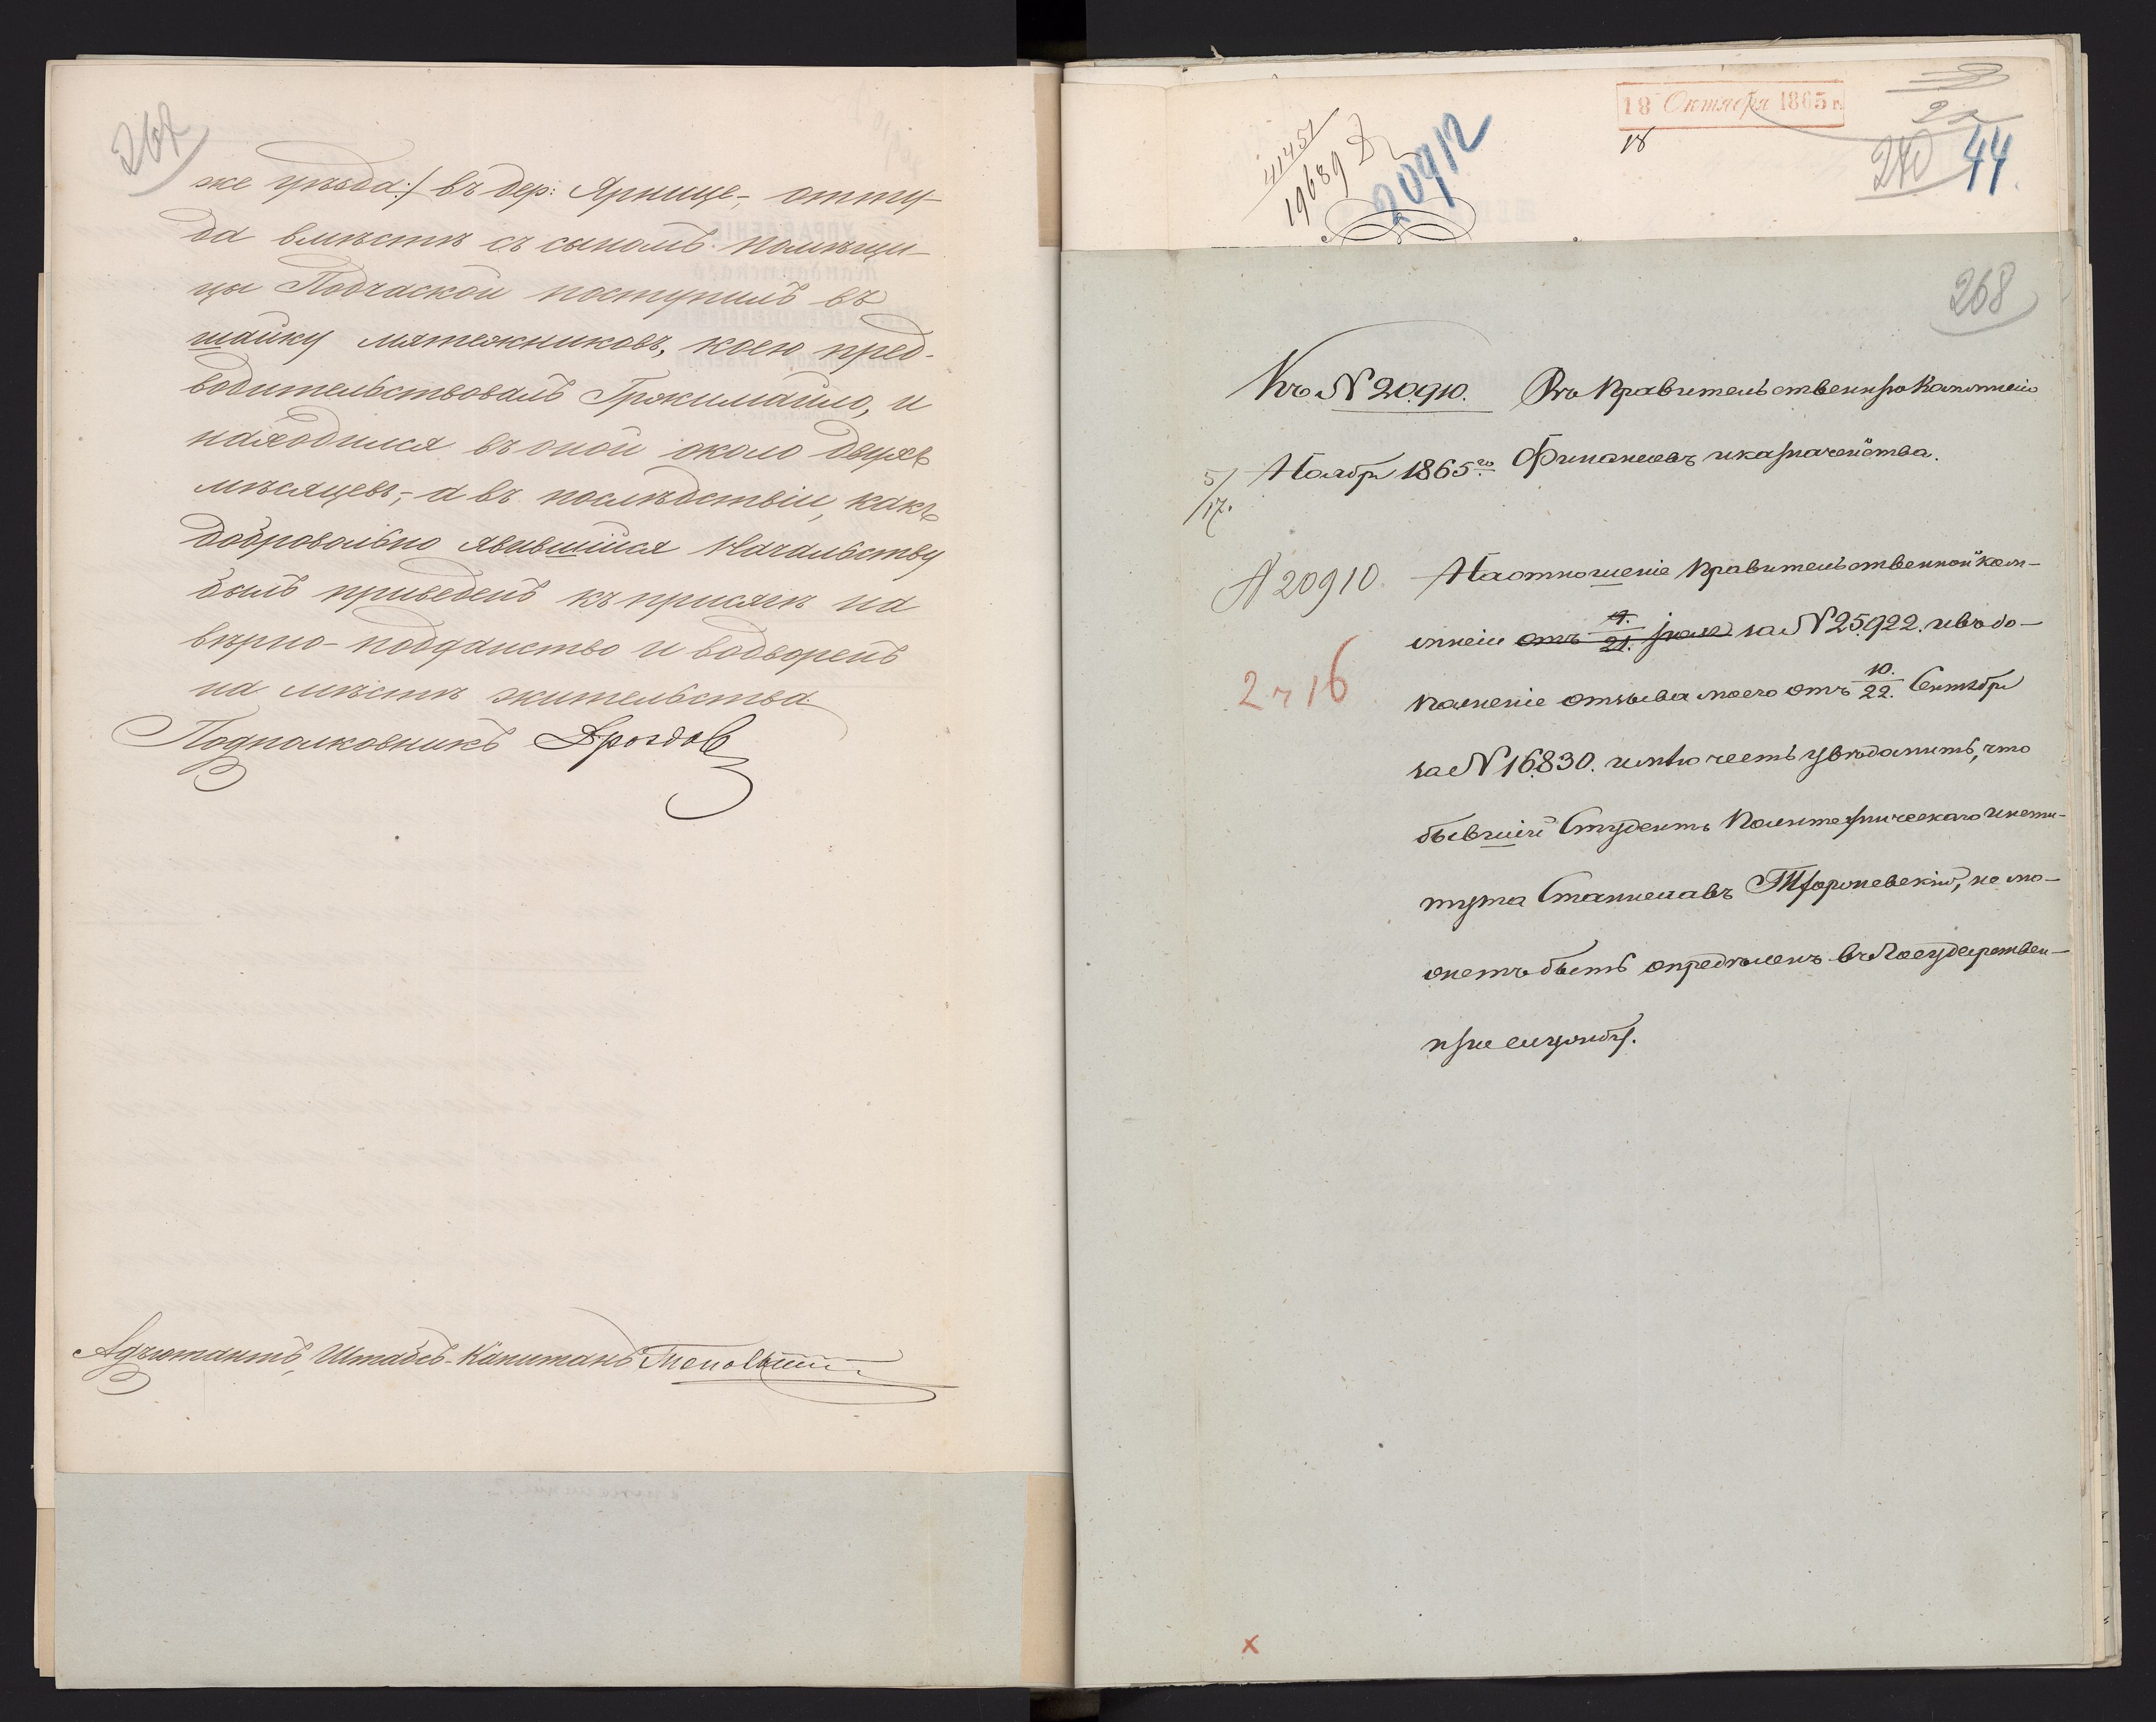 267
же уѣзда:/ въ дер: Ярнице, отту-
да вмѣстѣ съ сыномъ помѣщи-
цы Подчаской поступилъ въ
шайку мятежниковъ, коею пред-
водительствовалъ Гржимайло, и
находился въ оной около двухъ
мѣсяцевъ, а въ послѣдствіи, какъ
добровольно явившійся Начальству
былъ приведенъ къ присягѣ на
вѣрно-подданство и водворенъ
на мѣстѣ жительства
Подполковникъ Дроздовъ
Адъютантъ, Штабсъ-Капитанъ
41451
19689
20912
18 Октября 1865 г.
18
240 44.
268
Къ № 20910. Въ Правительственную Коммисію
5/17. Ноября 1865го Финансовъ и казначейства.
№ 20910. На отношеніе Правительственной Ком-
мисіи отъ 9./21. Іюля за № 25922. и въ до-
2 ч 16
полненіе отзыва моего отъ 10./22. Сентября
за № 16830. имѣю честь увѣдомить, что
бывшій Студентъ Политехническаго Инсти-
тута Станиславъ не мо-
жетъ быть опредѣленъ въ Государствен-
ную службу.
х